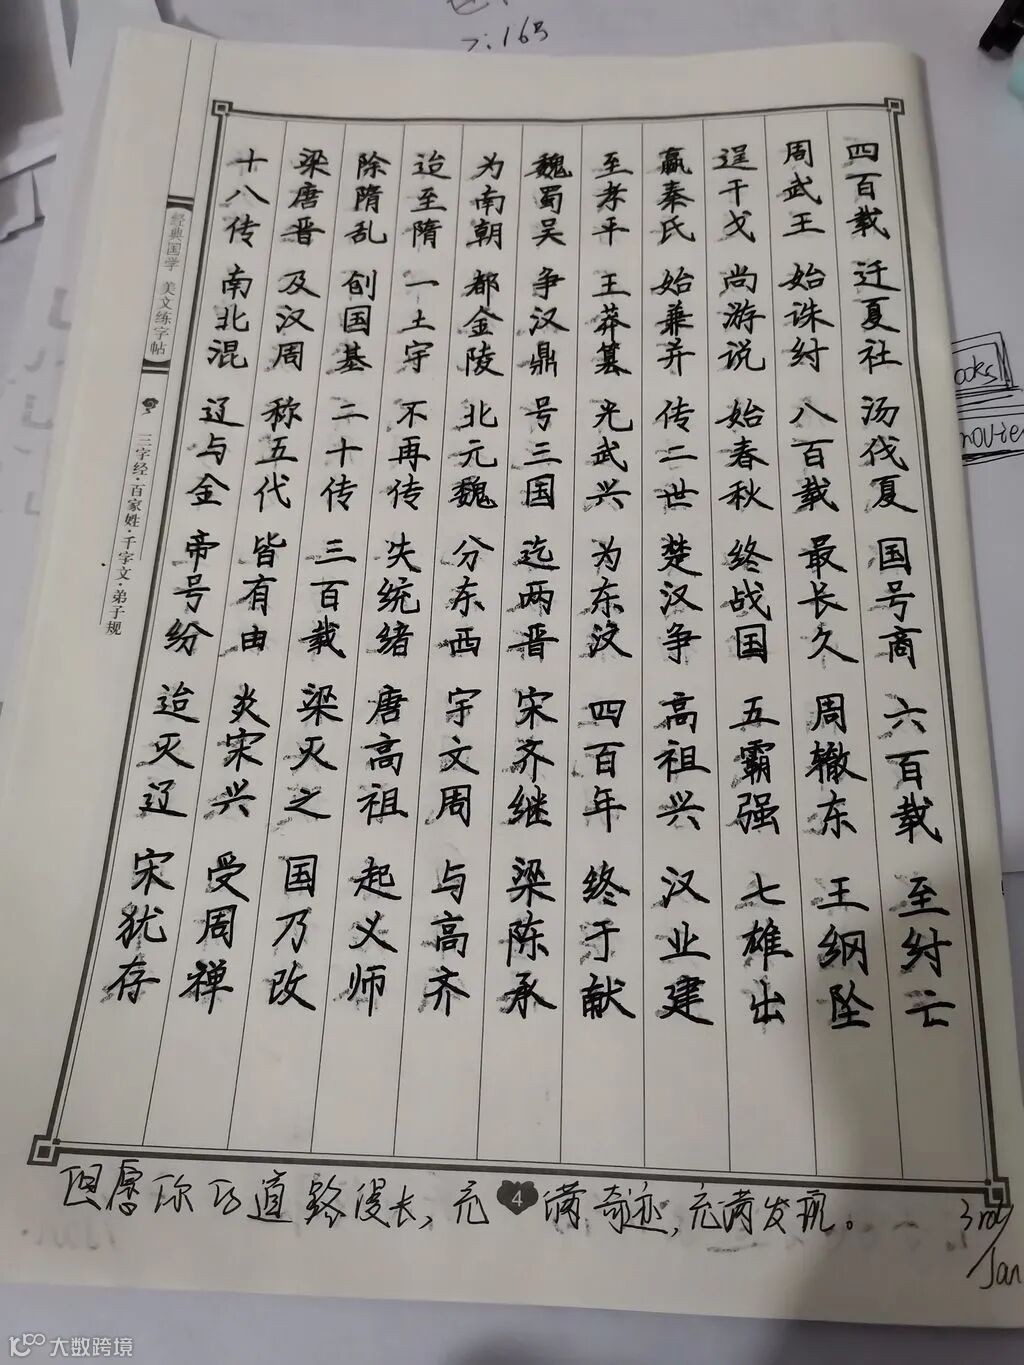 7:165
四百载 迁夏社 汤伐夏 国号商 六百载 至纣亡
周武王 始诛纣 八百载 最长久 周辙东 王纲坠
逞干戈 尚游说 始春秋 终战国 五霸强 七雄出
嬴秦氏 始兼并 传二世 楚汉争 高祖兴 汉业建
至孝平 王莽篡 光武兴 为东汉 四百年 终于献
魏蜀吴 争汉鼎 号三国 迄两晋 宋齐继 梁陈承
为南朝 都金陵 北元魏 分东西 宇文周 与高齐
迨至隋 一土宇 不再传 失统绪 唐高祖 起义师
除隋乱 创国基 二十传 三百载 梁灭之 国乃改
梁唐晋 及汉周 称五代 皆有由 炎宋兴 受周禅
十八传 南北混 辽与金 帝号纷 迨灭辽 宋犹存
经典国学 美文练字帖
三字经·百家姓·千字文·弟子规
但愿你的道路漫长，充满奇迹，充满发现。
4
3rd/Jan
大数跨境